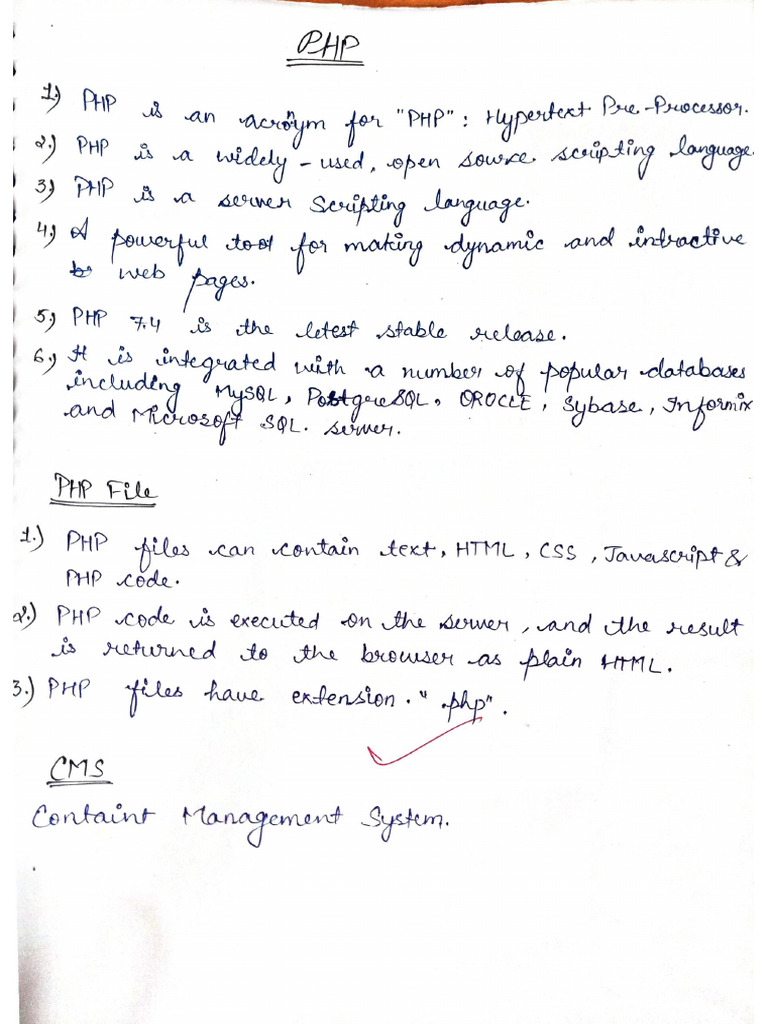 PHP
1.) PHP is an acronym for "PHP": Hypertext Pre-Processor.
2.) PHP is a widely-used, open source scripting language.
3) PHP is a server scripting language.
4.) A powerful tool for making dynamic and intractive
web pages.
5.) PHP 7.4 is the letest stable release.
6.) It is integrated with a number of popular databases
including MySQL, PostgreSQL, OROCLE, Sybase, Informix
and Microsoft SQL. server.
PHP File
1.) PHP files can contain text, HTML, CSS, Javascript &
PHP code.
2.) PHP code is executed on the server, and the result
is returned to the browser as plain HTML.
3.) PHP files have extension. ".php".
CMS
Containt Management System.